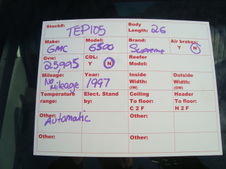 Stock#: TEP105 Body Length: 26
Make: GMC Model: 6500 Brand: Supreme Air brakes: Y N
Gvw: 25,995 CDL: Y N Reefer Model:
Mileage: No Mileage Year: 1997 Inside Width: Outside Width:
Temperature range: Elect, Stand by: Ceiling To floor: C 2 F Header To floor: H 2 F
Other: Automatic Other: Other: Other:
Other: